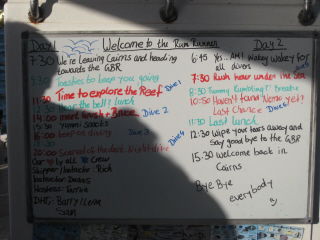 Day 1
Welcome to the Rum Runner
Day 2
7:30 We're leaving Cairns and heading
towards the GBR
Toasties to keep you going
11:30 Time to explore the Reef
Dive 1
the bell? lunch
14:00 meet
Dive 2
15:30 Yummi Snacks
16:00 keep on diving
Dive 3
20:00 Scared of the dark Night dive
Dive 4
Our by all Crew
Skipper/Instructor: Rich
Instructor:
Hostess:
DMS: Barry/Lena
Sam
6:45 Yes... AM! Wakey Wakey for
all divers
7:30 Rush hour under the Sea
8:30 Tummy Rumbling? Breakie
10:50 Haven't found Nemo yet?
Last Chance
11:30 Last lunch
12:30 Wipe your tears away and
say good bye to the GBR
15:30 welcome back in
Cairns
Bye Bye
everybody